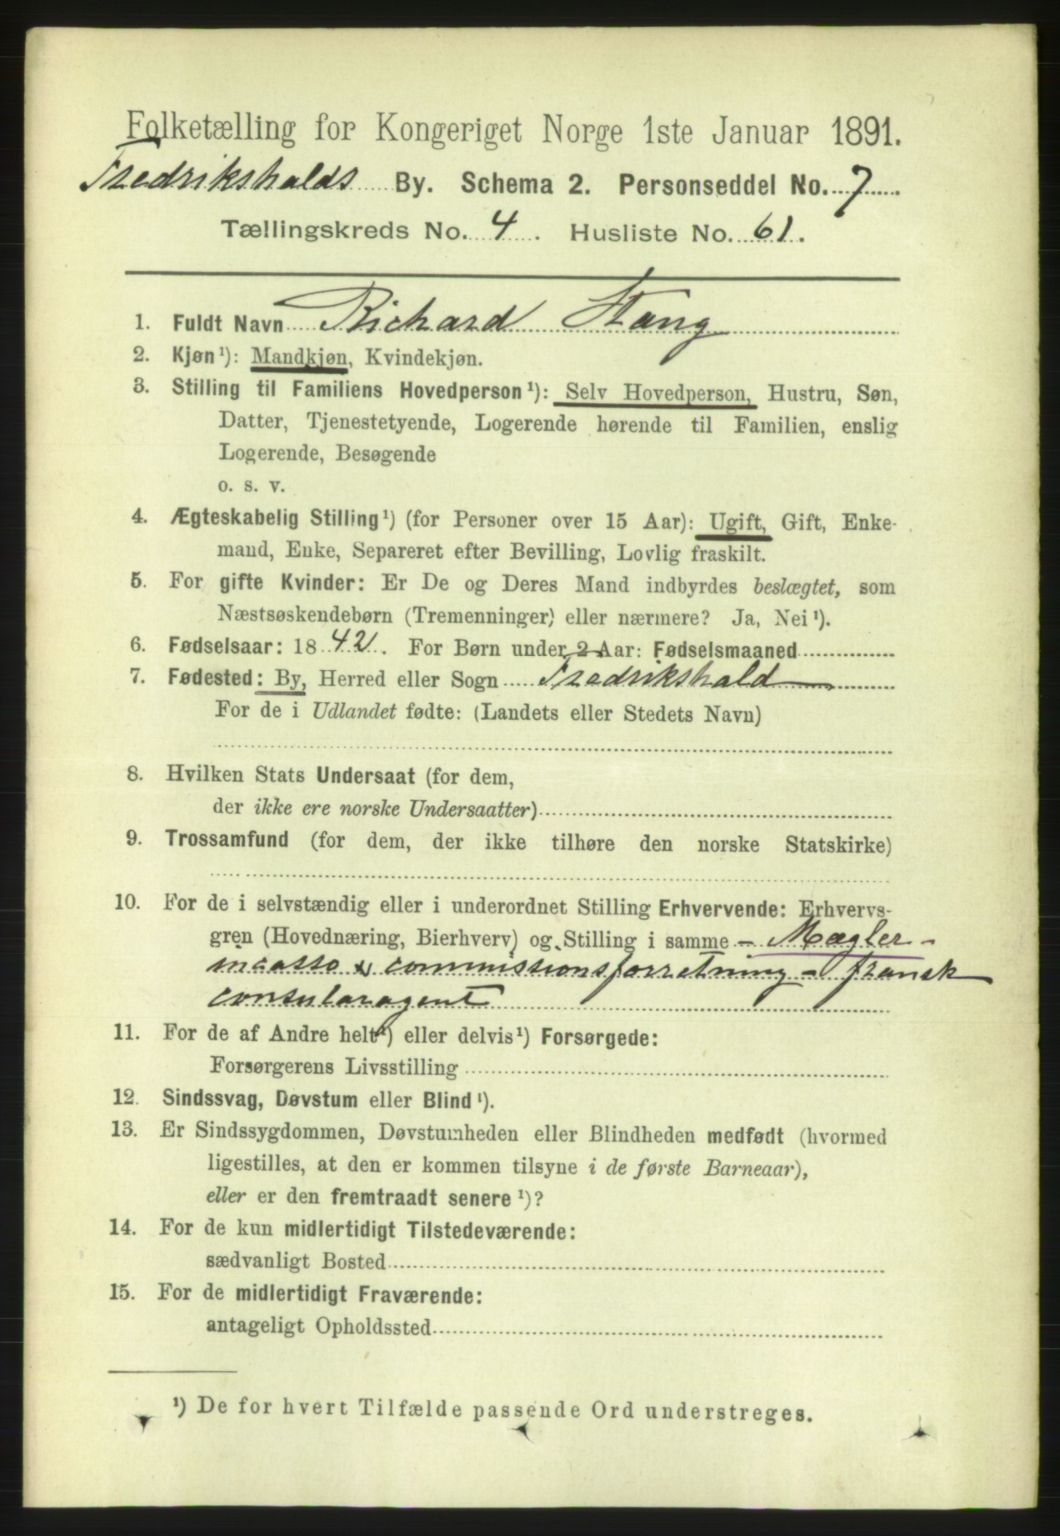 Folketælling for Kongeriget Norge 1ste Januar 1891.
Fredrikshalds By. Schema 2. Personseddel No. 7.
Tællingskreds No. 4. Husliste No. 61.
1. Fuldt Navn Richard Stang
2. Kjøn¹): Mandkjøn, Kvindekjøn.
3. Stilling til Familiens Hovedperson¹): Selv Hovedperson, Hustru, Søn,
Datter, Tjenestetyende, Logerende hørende til Familien, enslig
Logerende, Besøgende
o. s. v.
4. Ægteskabelig Stilling¹) (for Personer over 15 Aar): Ugift, Gift, Enke-
mand, Enke, Separeret efter Bevilling, Lovlig fraskilt.
5. For gifte Kvinder: Er De og Deres Mand indbyrdes beslægtet, som
Næstsøskendebørn (Tremenninger) eller nærmere? Ja, Nei¹).
6. Fødselsaar: 1842. For Børn under 2 Aar: Fødselsmaaned
7. Fødested: By, Herred eller Sogn Fredrikshald
For de i Udlandet fødte: (Landets eller Stedets Navn)
8. Hvilken Stats Undersaat (for dem,
der ikke ere norske Undersaatter)
9. Trossamfund (for dem, der ikke tilhøre den norske Statskirke)
10. For de i selvstændig eller i underordnet Stilling Erhvervende: Erhvervs-
gren (Hovednæring, Bierhverv) og Stilling i samme - Mægler -
incasso & commissionsforretning - fransk
consularagent
11. For de af Andre helt¹) eller delvis¹) Forsørgede:
Forsørgerens Livsstilling
12. Sindssvag, Døvstum eller Blind¹).
13. Er Sindssygdommen, Døvstumheden eller Blindheden medfødt (hvormed
ligestilles, at den er kommen tilsyne i de første Barneaar),
eller er den fremtraadt senere¹)?
14. For de kun midlertidigt Tilstedeværende:
sædvanligt Bosted
15. For de midlertidigt Fraværende:
antageligt Opholdssted
¹) De for hvert Tilfælde passende Ord understreges.